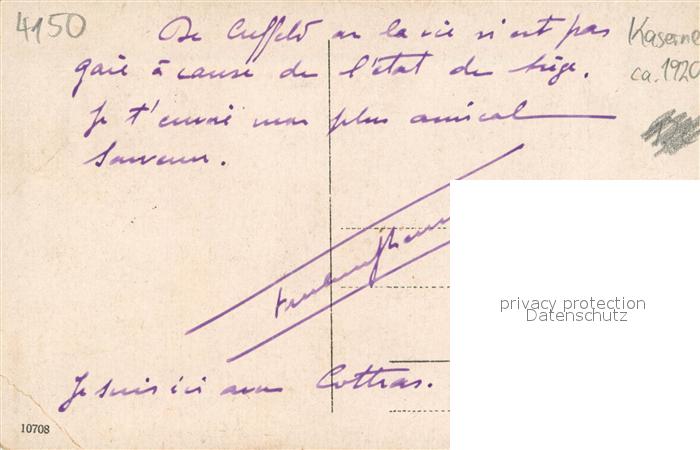 4150
De Cuffeld où la vie n'est pas
Kaserne
gaie à cause de l'état de siège.
ca. 1920
Je t'envoi mon plus amical
Souvenir.
privacy protection
Datenschutz
Je suis ici avec Cottras.
10708